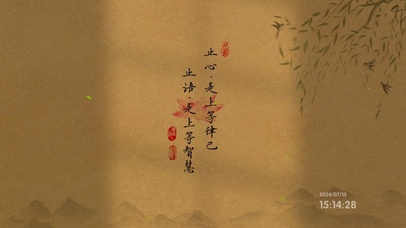 止心·是上等律己
止语·是上等智慧
2024/07/10
15:14:28